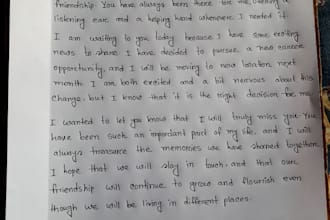 friendship. You have always been there for me, offering a
listening ear and a helping hand whenever I needed it.
I am writing to you today because I have some exciting
news to share. I have decided to pursue a new career
opportunity, and I will be moving to new location next
month. I am both excited and a bit nervous about this
change, but I know that it is the right decision for me.
I wanted to let you know that I will truly miss you. You
have been such an important part of my life, and I will
always treasure the memories we have shared together.
I hope that we will stay in touch, and that our
friendship will continue to grow and flourish even
though we will be living in different places.